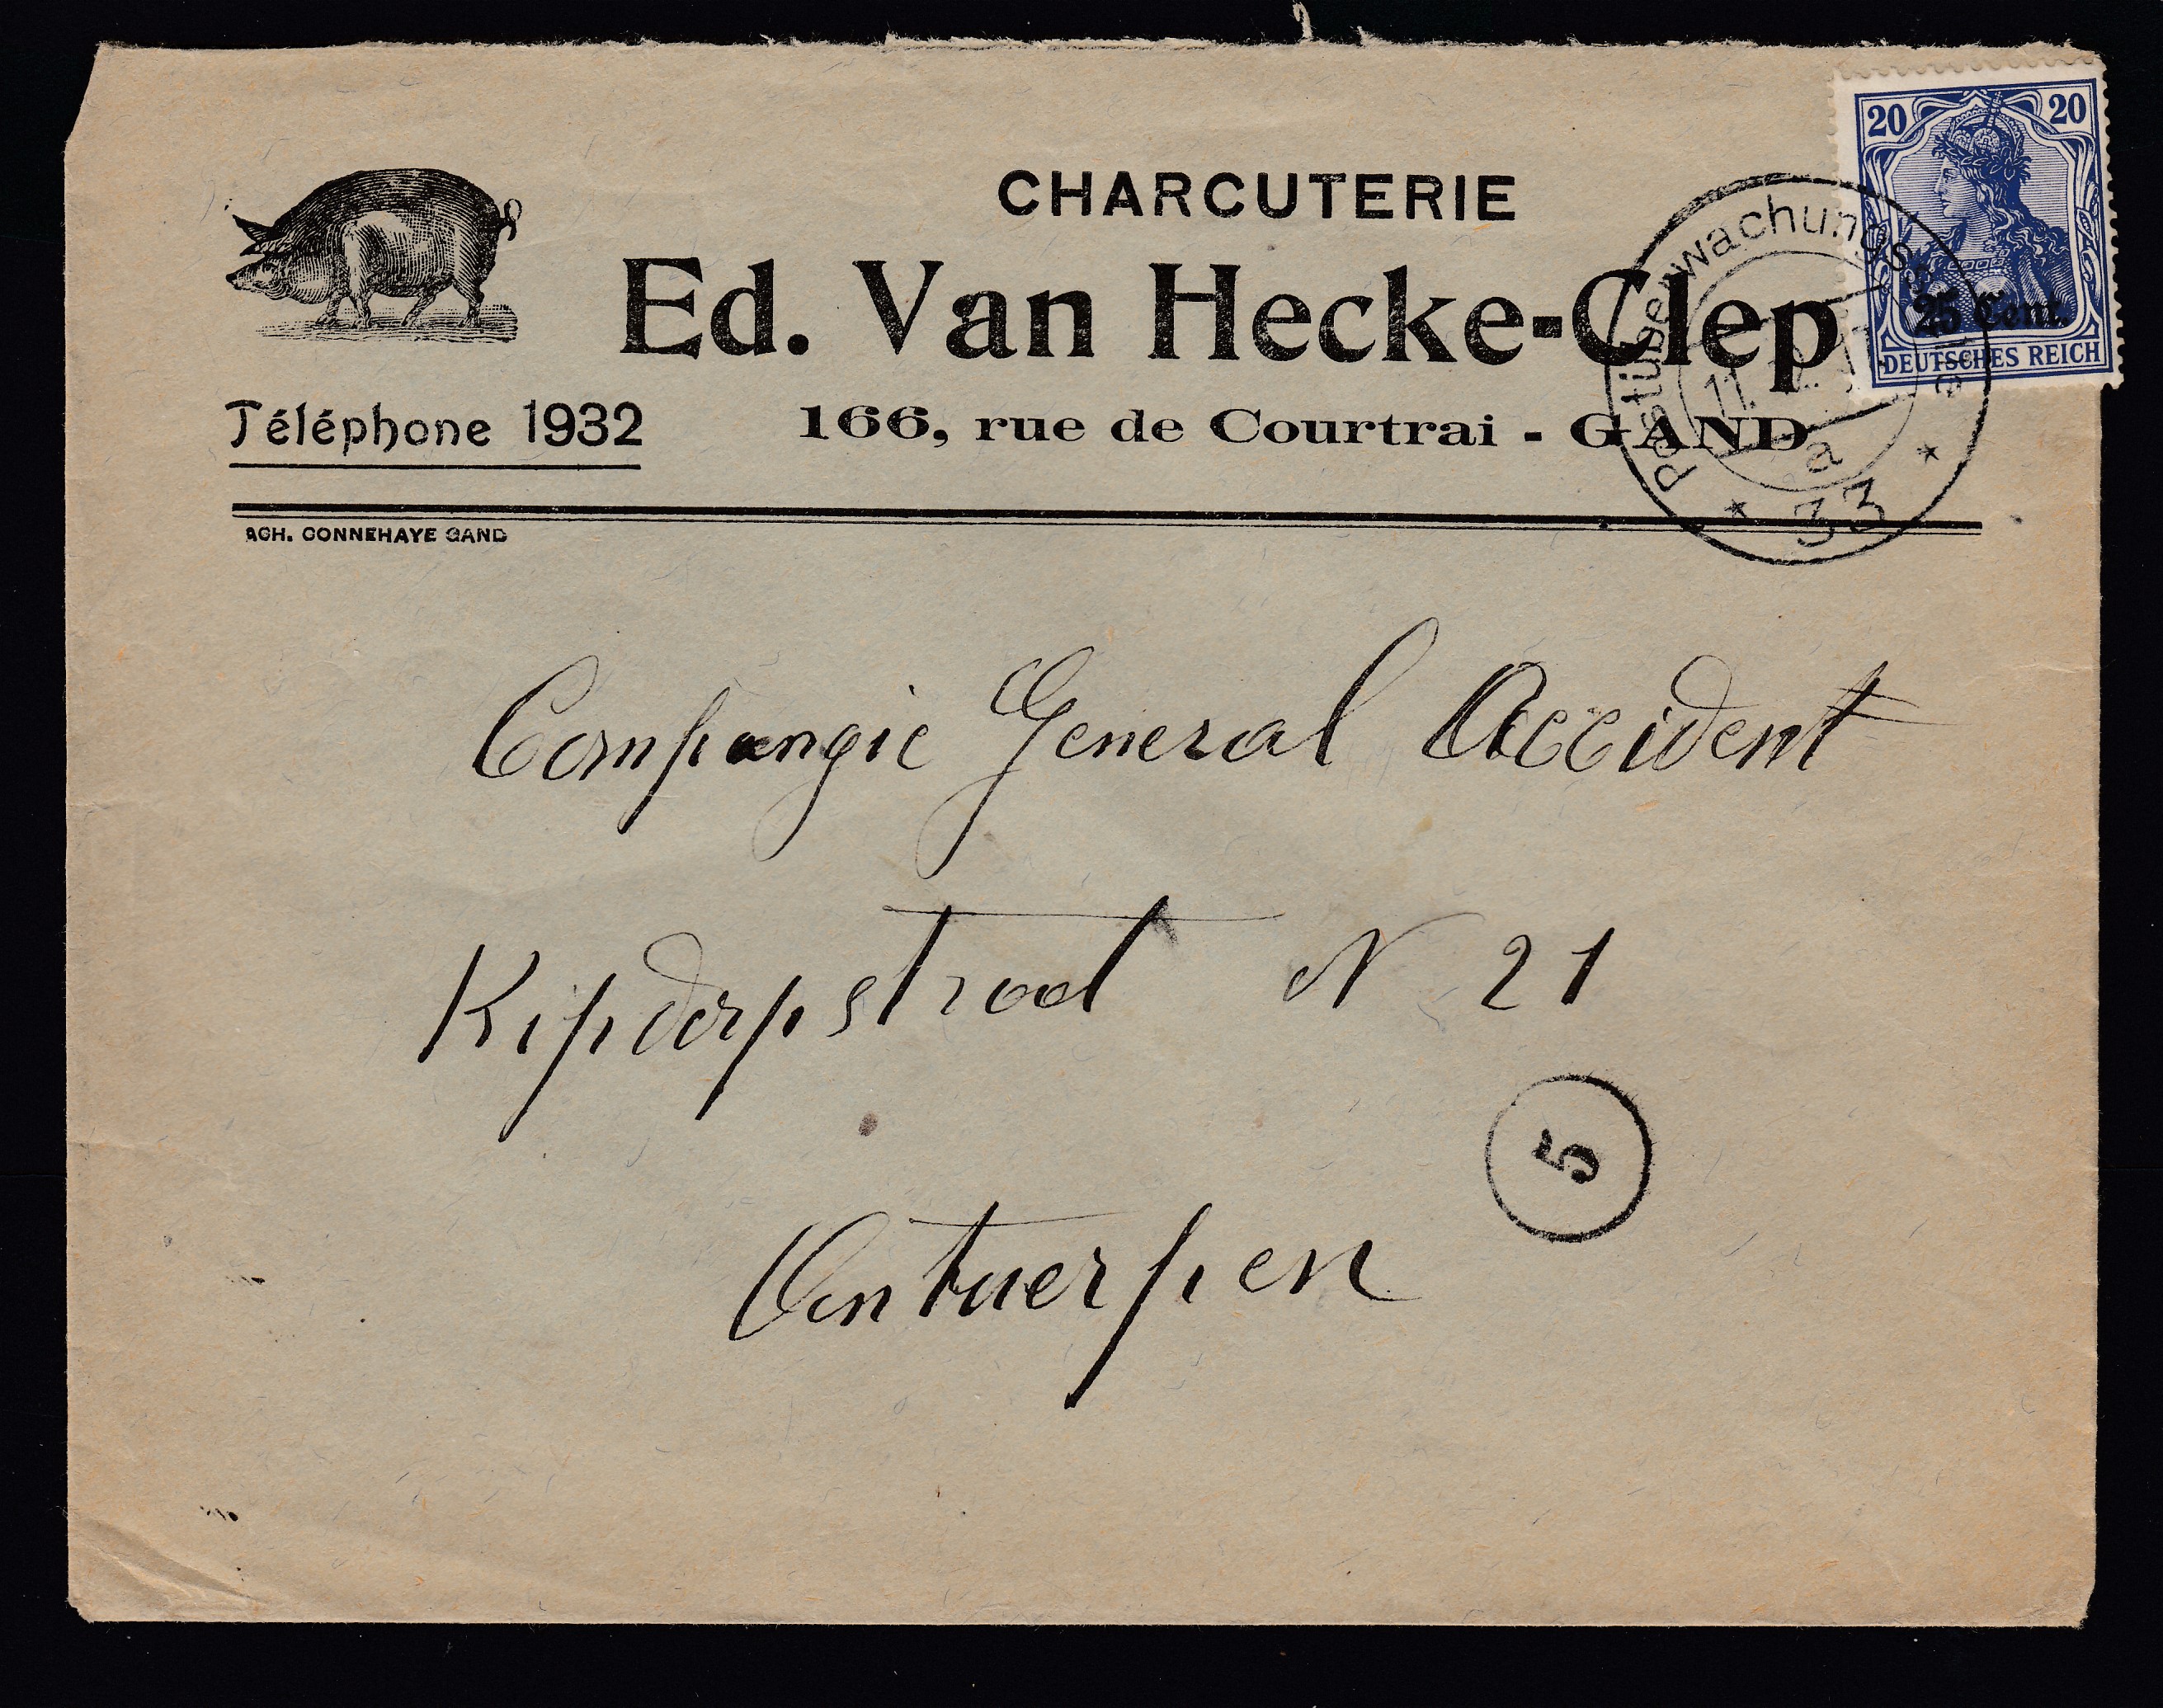 CHARCUTERIE
Ed. Van Hecke-Clep
Téléphone 1932
166, rue de Courtrai - GAND
ACH. GONNEHAYE GAND
20 20
25 Cent.
DEUTSCHES REICH
Postüberwachungs
11.
a
* 33 *
Compangie General Accident
Kipdorpstraat N 21
5
Antwerpen